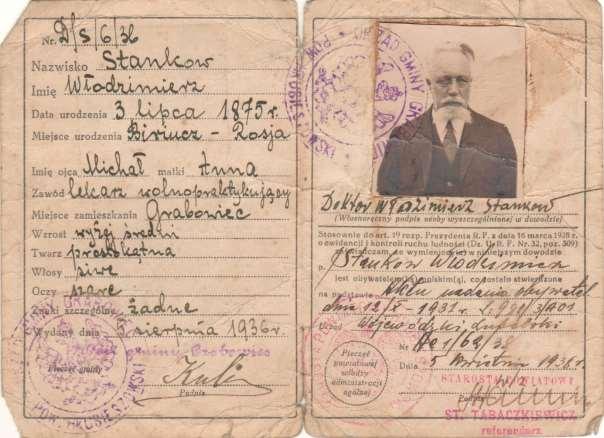 Nr. D/s/6/36
Nazwisko Stankow
Imię Włodzimierz
Data urodzenia 3 lipca 1875 r.
Miejsce urodzenia Biriucz - Rosja
Imię ojca Michał matki Anna
Zawód lekarz wolnopraktykujący
Miejsce zamieszkania Grabowiec
Wzrost wyżej średni
Twarz prostokątna
Włosy siwe
Oczy szare
Znaki szczególne żadne
Wydany dnia 5 sierpnia 1936 r.
gminy Grabowiec
Pieczęć gminy
Podpis
URZĄD GMINY
Doktór Włodzimierz Stankow
(Własnoręczny podpis osoby wyszczególnionej w dowodzie)
Stosownie do art. 19 rozp. Prezydenta R. P. z dnia 16 marca 1928 r.
o ewidencji i kontroli ruchu ludności (Dz. U. R. P. Nr. 32, poz. 309)
zaświadczam, że wymieniony w niniejszym dowodzie
p. Stankow Włodzimierz
jest obywatelem polskim, co zostało stwierdzone
na podstawie aktu nadania obywatel
dnia 12/X - 1931 r.
Urząd Wojewódzki Lubelski
Nr
Data 5 września 1936 r.
Pieczęć
powiatowej
władzy
administracji
ogólnej
STAROSTA POWIATOWY
ST. TABACZKIEWICZ
referendarz